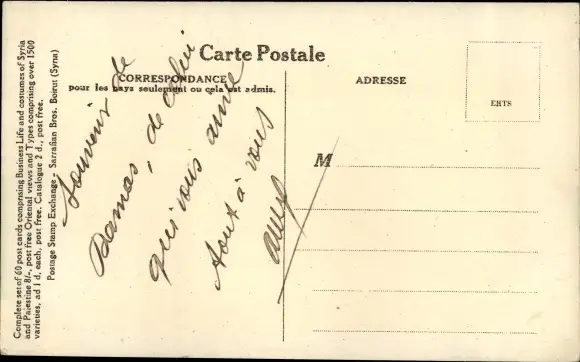 Complete set of 60 post cards comprising Business Life and costumes of Syria
and Palestine 8/-, post free Oriental views and Types comprising over 1500
varieties, ad 1 d. each, post free. Catalogue 2 d., post free.
Postage Stamp Exchange - Sarrafian Bros. Beirut (Syria)
Carte Postale
CORRESPONDANCE
pour les pays seulement ou cela est admis.
ADRESSE
ERTS
M
Souvenir de
Damas, de celui
qui vous aime
Tout à vous